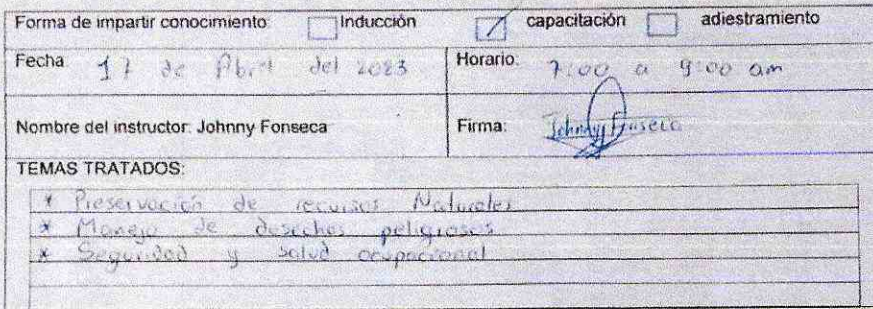 Forma de impartir conocimiento: Inducción capacitación adiestramiento
Fecha 17 de Abril del 2023 Horario: 7:00 a 9:00 am
Nombre del instructor: Johnny Fonseca Firma: Johnny Fonseca
TEMAS TRATADOS:
* Preservación de recursos Naturales
* Manejo de desechos peligrosos
* Seguridad y salud ocupacional